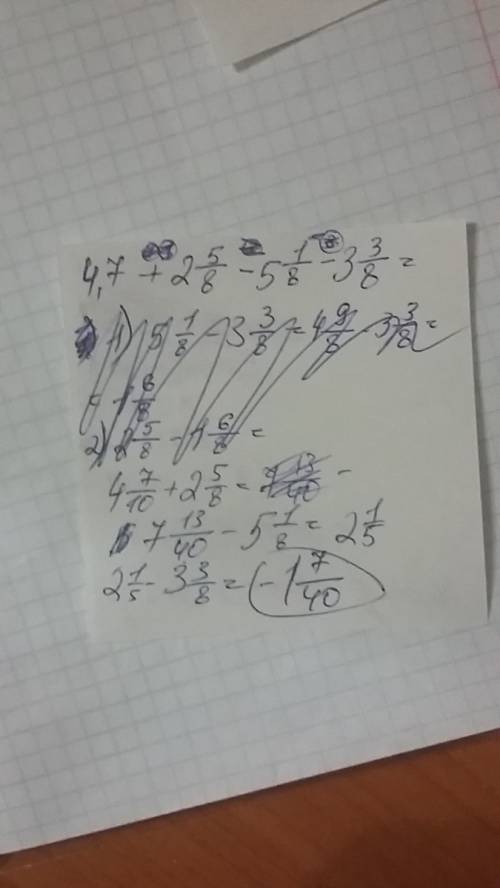 4,7 + 2 5/8 - 5 1/8 - 3 3/8 =
1) 5 1/8 - 3 3/8 = 4 9/8 - 3 3/8 =
= 1 6/8
2) 2 5/8 - 1 6/8 =
4 7/10 + 2 5/8 = 7 13/40 -
7 13/40 - 5 1/8 = 2 1/5
2 1/5 - 3 3/8 = -1 7/40